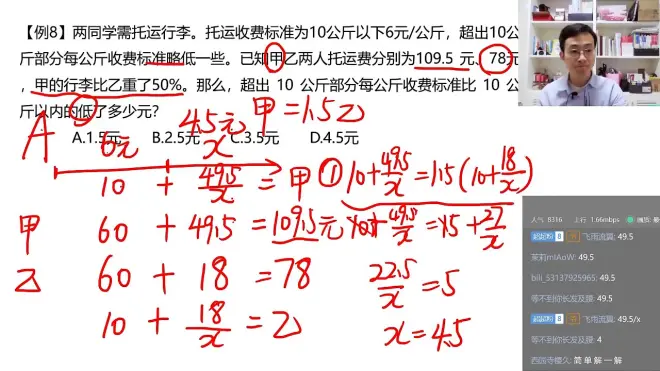 【例8】两同学需托运行李。托运收费标准为10公斤以下6元/公斤，超出10公
斤部分每公斤收费标准略低一些。已知甲乙两人托运费分别为109.5 元、78元
，甲的行李比乙重了50%。那么，超出 10 公斤部分每公斤收费标准比 10 公
斤以内的低了多少元？
A.1.5元 B.2.5元 C.3.5元 D.4.5元
A
6元 4.5元 x
甲=1.5乙
10 + 49.5/x = 甲
甲 60 + 49.5 = 109.5元
乙 60 + 18 = 78
10 + 18/x = 乙
① 10+49.5/x=1.5(10+18/x)
10+49.5/x=15+27/x
22.5/x=5
x=4.5
人气 8316 上行 1.66mbps
8 飞雨流翼: 49.5
茉莉mIAoW: 49.5
bili_53137925965: 49.5
等不到你长发及腰: 49.5
8 飞雨流翼: 49.5/x
等不到你长发及腰: 4
西园寺稷久: 简 单 解 一 解